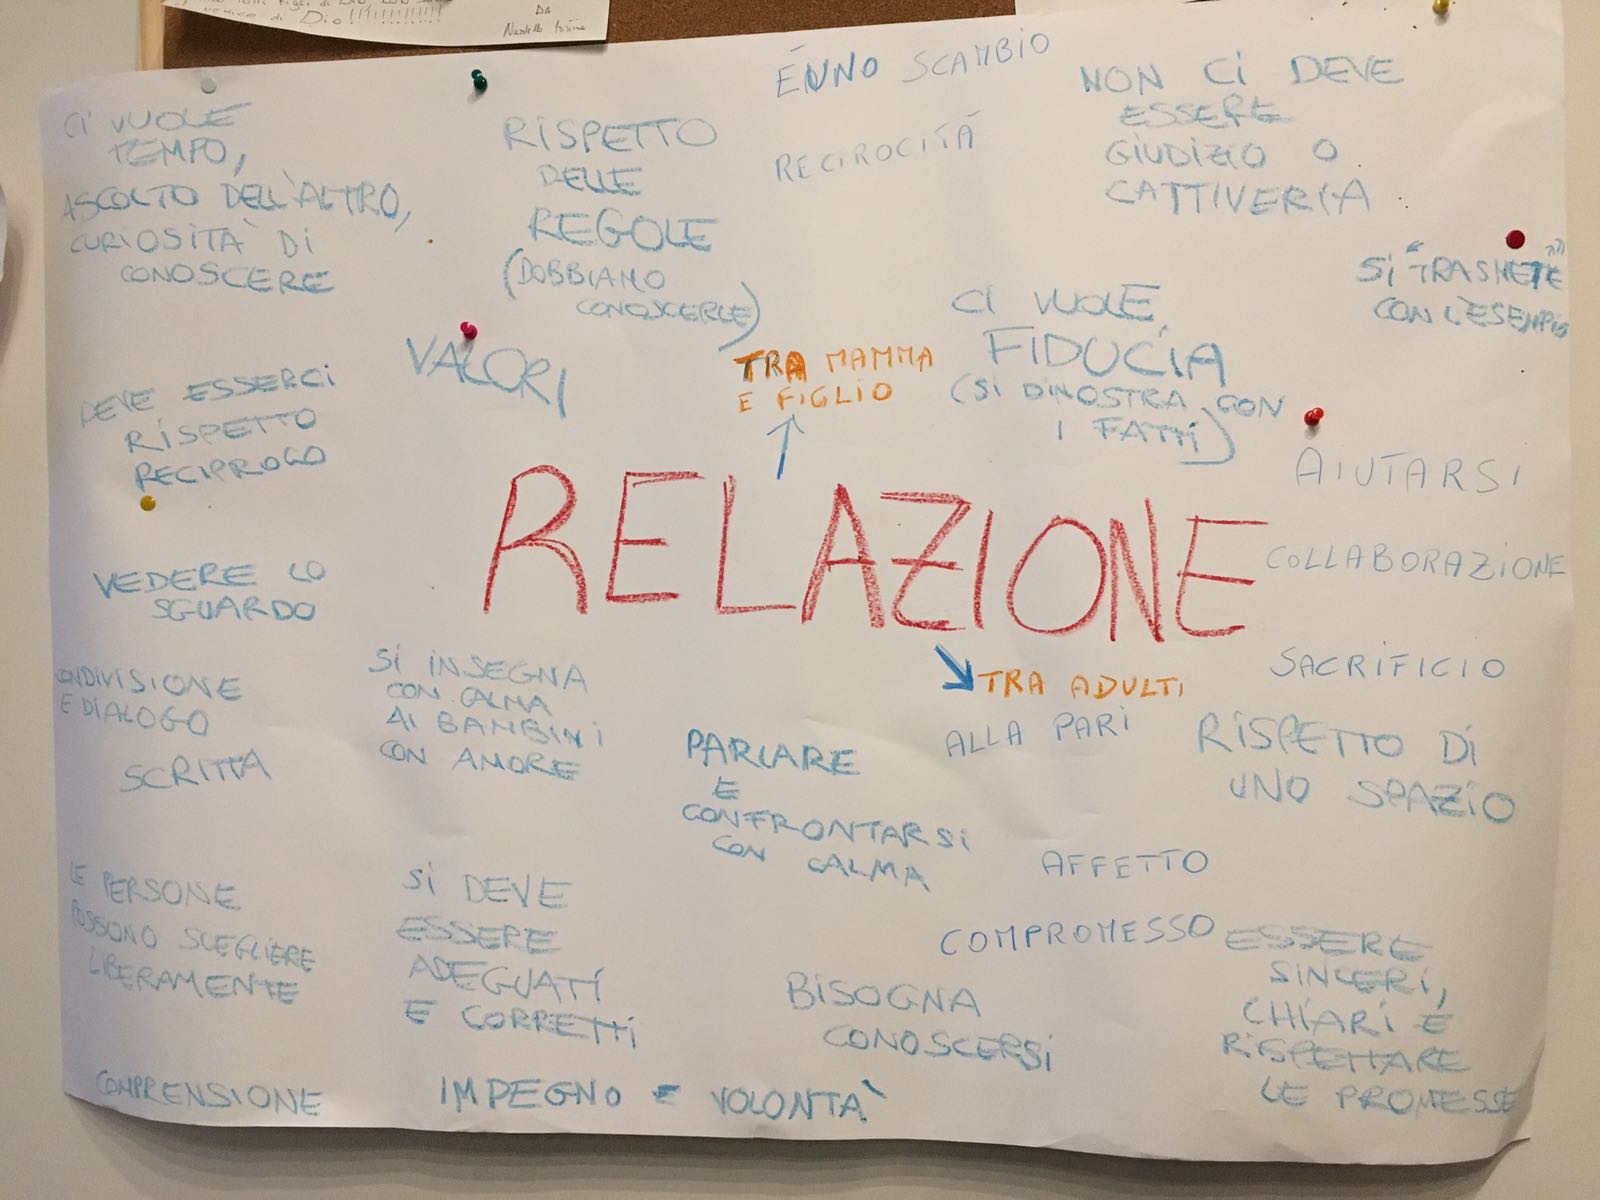 di Dio!!!!!!!!!!!
DA
CI VUOLE
TEMPO,
ASCOLTO DELL'ALTRO,
CURIOSITÀ DI
CONOSCERE
RISPETTO
DELLE
REGOLE
(DOBBIAMO
CONOSCERLE)
ÉNNO SCAMBIO
RECIROCITÁ
NON CI DEVE
ESSERE
GIUDIZIO O
CATTIVERIA
SI "TRASMETE"
CON L'ESEMPIO
VALORI
TRA MAMMA
E FIGLIO
CI VUOLE
FIDUCIA
(SI DIMOSTRA CON
I FATTI)
DEVE ESSERCI
RISPETTO
RECIPROCO
AIUTARSI
RELAZIONE
COLLABORAZIONE
VEDERE LO
SGUARDO
SACRIFICIO
TRA ADULTI
ALLA PARI
CONDIVISIONE
E DIALOGO
SCRITTA
SI INSEGNA
CON CALMA
AI BAMBINI
CON AMORE
PARLARE
E
CONFRONTARSI
CON CALMA
RISPETTO DI
UNO SPAZIO
AFFETTO
LE PERSONE
POSSONO SCEGLIERE
LIBERAMENTE
SI DEVE
ESSERE
ADEGUATI
E CORRETTI
COMPROMESSO
BISOGNA
CONOSCERSI
ESSERE
SINCERI,
CHIARI E
RISPETTARE
LE PROMESSE
COMPRENSIONE
IMPEGNO E VOLONTÀ